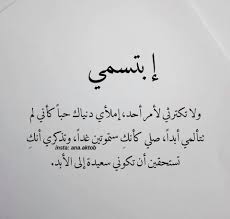 إبتسمي
ولا تكترثي لأمر أحد، إملأي دنياك حباً كأني لم
تتألمي أبداً، صلي كأنكِ ستموتين غداً، وتذكري أنكِ
insta: ana.aktob
تستحقين أن تكوني سعيدة إلى الأبد.